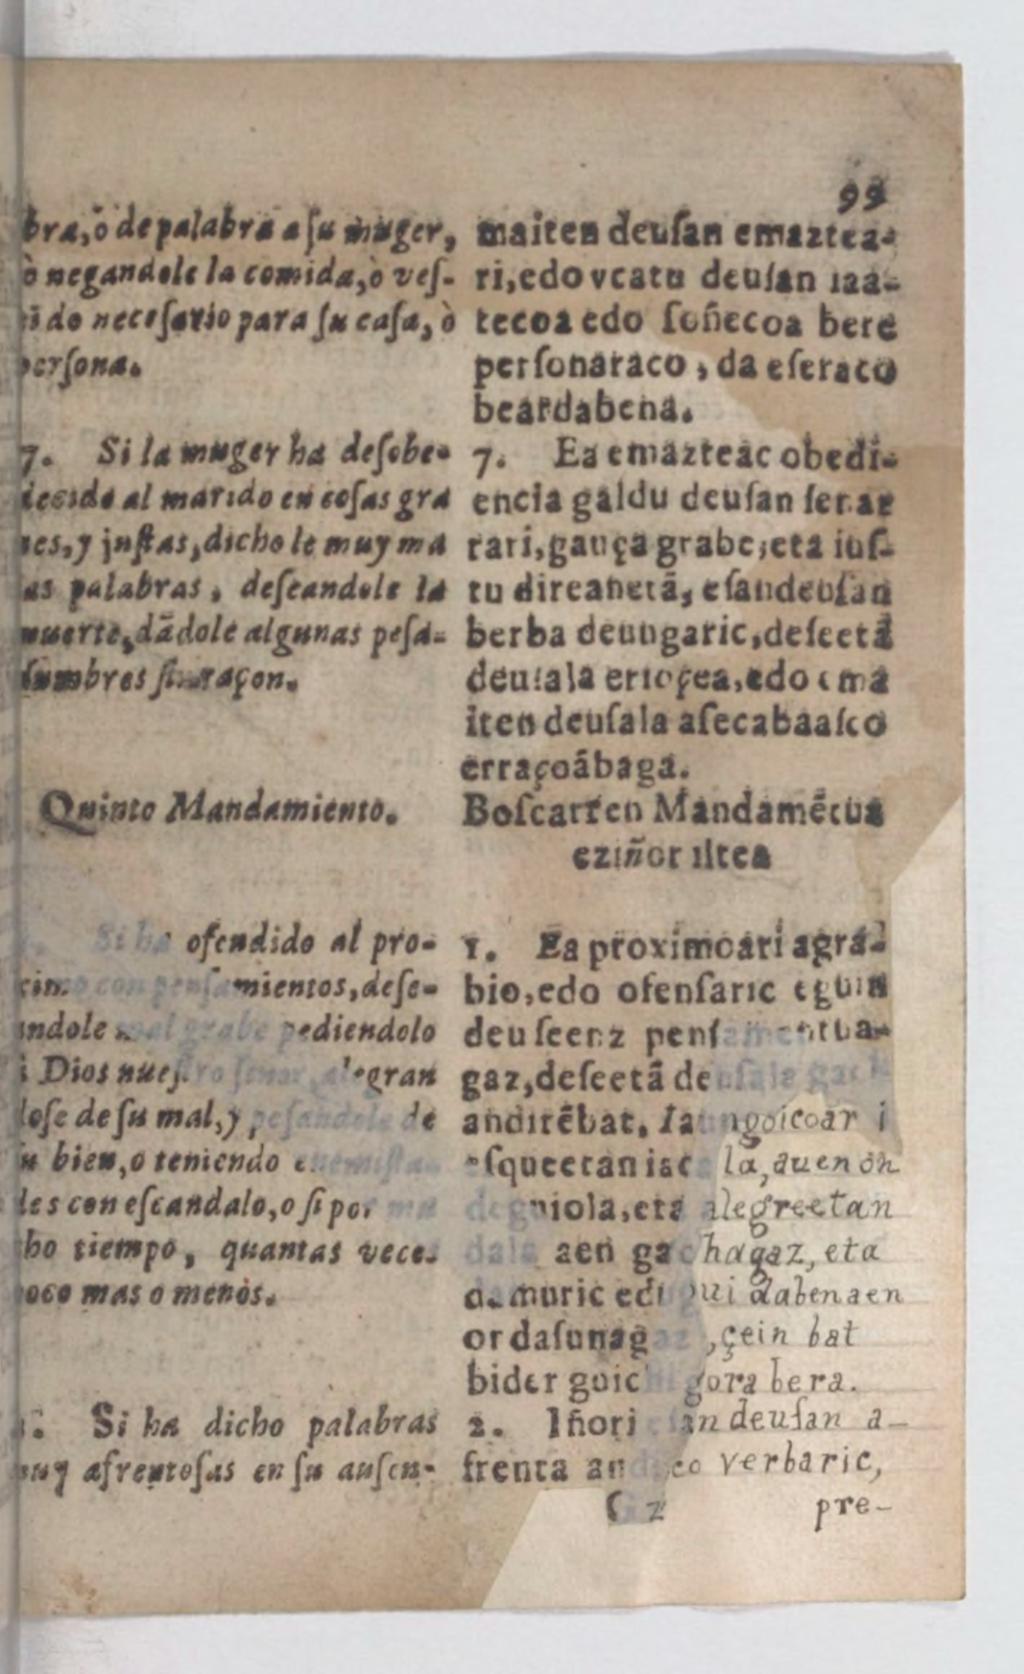 99
bra, ò de palabra a ſu muger,
ò negandole la comida, ò veſ-
do neceſario para ſu caſa, ò
perſona.
7. Si la muger ha deſobe-
decido al marido en coſas gra
ues, y juſtas, dicho le muy ma
as palabras, deſeandole la
muerte, dãdole algunas peſa-
dumbres ſin raçon.
Quinto Mandamiento.
Si ha ofendido al pro-
cimo con penſamientos, deſe-
andole mal grabe pediendolo
à Dios nueſtro ſenor, alegran
doſe de ſu mal, y peſandole de
ſu bien, o teniendo enemiſta-
des con eſcandalo, o ſi por mu
cho tiempo, quantas veces
poco mas o menòs.
2. Si ha dicho palabras
muy afrentoſas en ſu auſen-
maiten deuſan emaztea-
ri, edo vcatu deuſan iaa-
tecoa edo ſoñecoa bere
perſonaraco, da eſeraco
beardabena.
7. Ea emazteac obedi-
encia galdu deuſan ſenar
rari, gauça grabe, eta iuſ-
tu direanetã, eſandeuſan
berba deungaric, deſeetã
deuſala eriocea, edo ema
iten deuſala aſecabaaſco
erraçoãbaga.
Boſcarren Mandamẽtua
eziñor iltea
1. Ea proximoari agra-
bio, edo ofenſaric eguin
deuſeenz penſamentua-
gaz, deſeetã deuſala gach
anditẽbat. Iaungoicoar i
eſqueetan iaca la, auen on
deguiola, eta alegreetan
dala aen gachagaz, eta
damuric edugui dabenaen
ordaſunagaz, çein bat
bider goichigora bera.
2. Iñori eſan deuſan a-
frenta andico verbaric,
G2
pre-